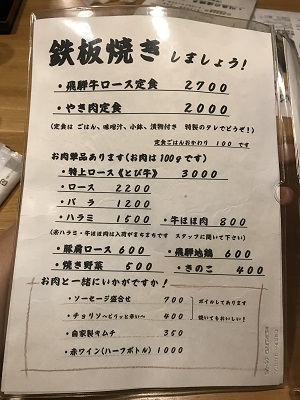 鉄板焼きしましょう!
・飛騨牛ロース定食 2700
・やき肉定食 2000
(定食は ごはん、味噌汁、小鉢、漬物付き 特製のタレでどうぞ!)
定食ごはんおかわり 100 です
お肉単品あります(お肉は 100g です)
・特上ロース《とび牛》 3000
・ロース 2200
・バラ 1200
・ハラミ 1500 ・牛ほほ肉 800
(※ハラミ・牛ほほ肉は入荷がまちまちです スタッフに聞いて下さい)
・豚肩ロース 600 ・飛騨地鶏 600
・焼き野菜 500 ・きのこ 400
お肉と一緒にいかがですか!
・ソーセージ盛合せ 700 ボイルしてあります
・チョリソ〜ピリッと辛い〜 400 焼いてもおいしい!
・自家製キムチ 350
・赤ワイン(ハーフボトル) 1000